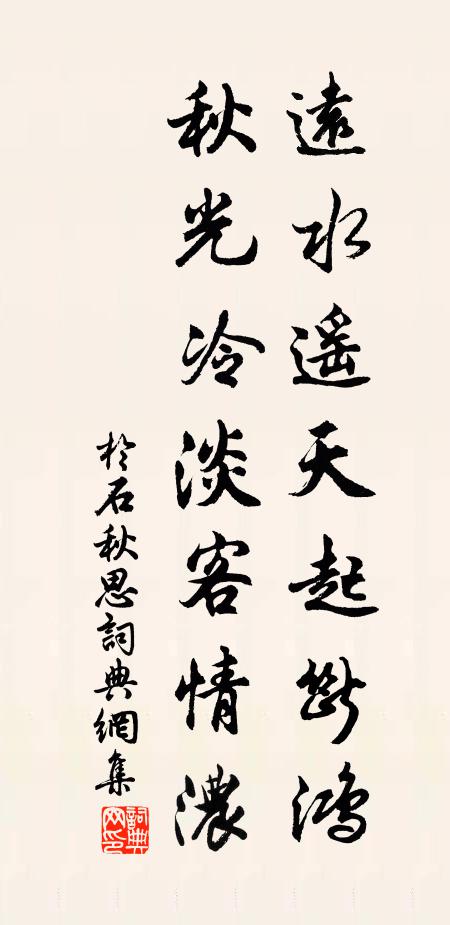 遠水遥天起斷鴻
秋光冷淡客情濃
於石秋思詞典網集
詞典網印